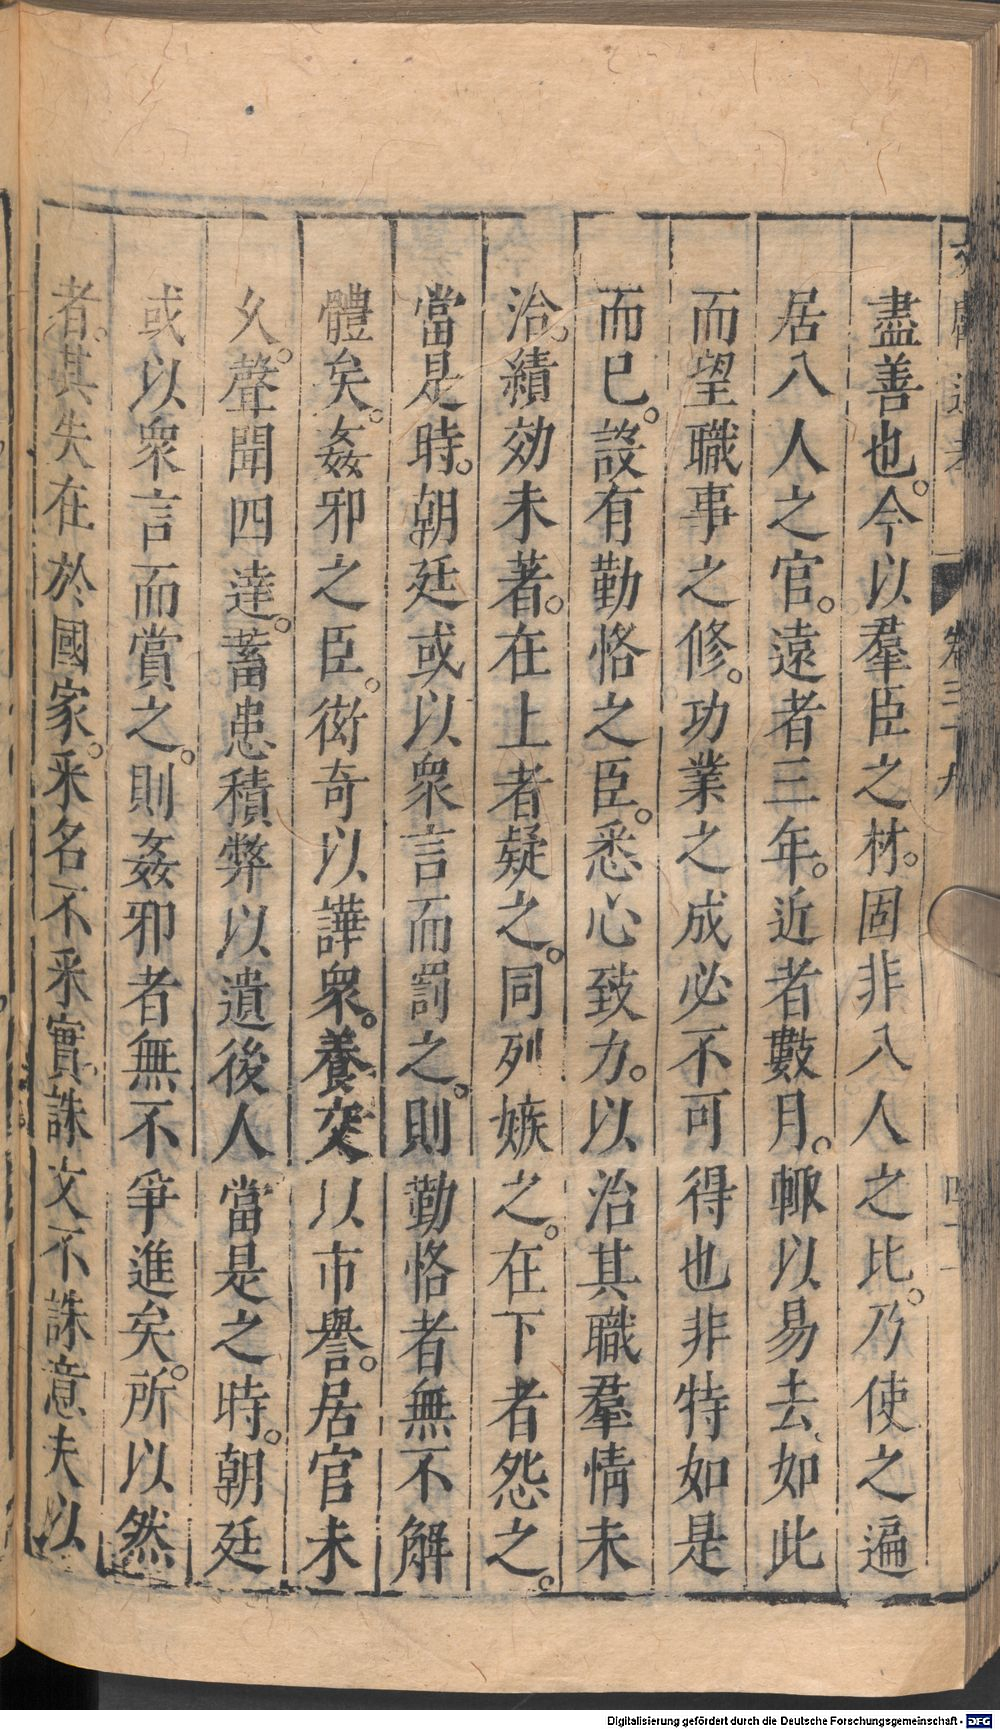 盡善也。今以羣臣之材。固非八人之比。乃使之遍
居八人之官。遠者三年。近者數月。輙以易去、如此
而望職事之修。功業之成必不可得也非特如是
而已。設有勤恪之臣。悉心致力。以治其職羣情未
洽。績効未著。在上者疑之。同列嫉之。在下者怨之。
當是時。朝廷或以衆言而罰之。則勤恪者無不解
體矣。姦邪之臣。衒奇以譁衆。養交以市譽。居官未
久。聲聞四達。蓄患積弊以遺後人當是之時。朝廷
或以衆言而賞之。則姦邪者無不爭進矣。所以然
者。其失在於國家。采名不采實。誅文不誅意夫以
卷三十九
Digitalisierung gefördert durch die Deutsche Forschungsgemeinschaft - DFG